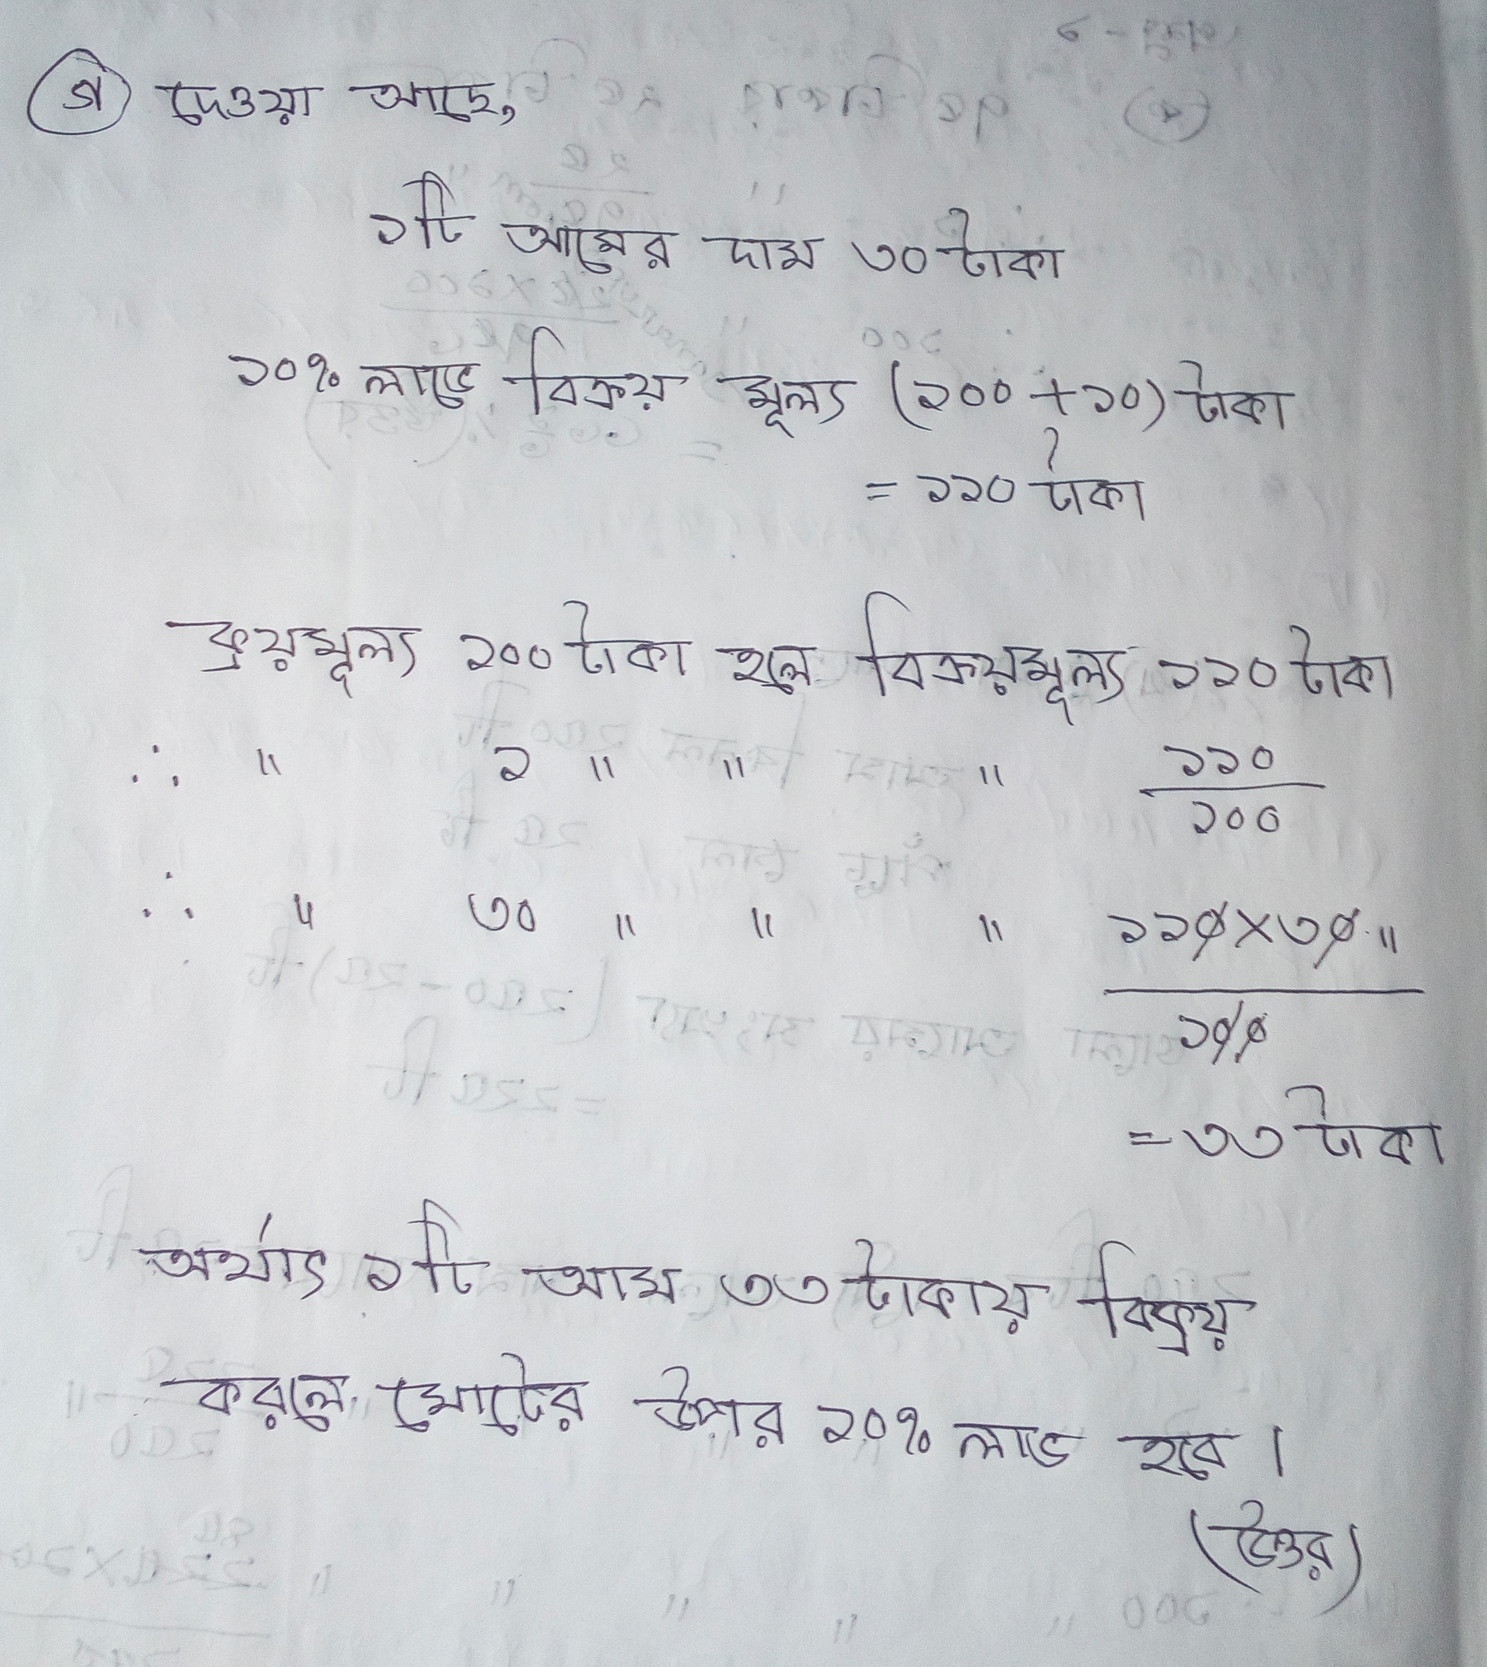 গ) দেওয়া আছে,
১টি আমের দাম ৩০ টাকা
১০% লাভে বিক্রয় মূল্য (১০০ + ১০) টাকা
= ১১০ টাকা
ক্রয়মূল্য ১০০ টাকা হলে বিক্রয়মূল্য ১১০ টাকা
∴ " ১ " " " ১১০
১০০
∴ " ৩০ " " " ১১০ × ৩০ "
১০০
= ৩৩ টাকা
অর্থাৎ ১টি আম ৩৩ টাকায় বিক্রয়
করলে মোটের উপর ১০% লাভ হবে।
(উত্তর)